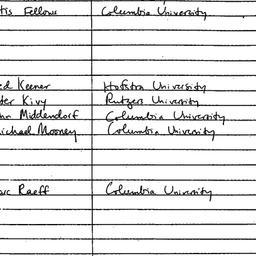 tis Fellows Columbia University
ed Keener Hofstra University
ter Kivy Rutgers University
hn Middendorf Columbia University
ichael Mooney Columbia University
arc Raeff Columbia University